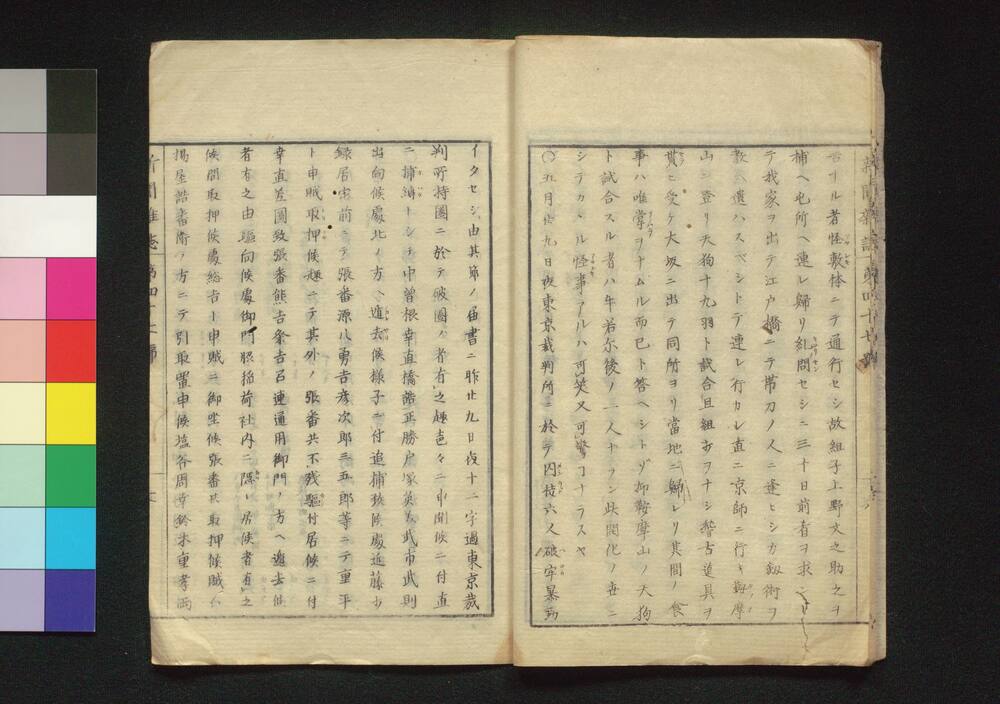 者怪敷体ニテ通行セシ故組子上野文之助之ヲ
捕ヘ屯所ヘ連レ歸リ糺問セシニ三十日前者ヲ求
テ我家ヲ出テ江戸橋ニテ帯刀ノ人ニ逢ヒシカ劔術ヲ
教ヘ遣ハスベシトテ連レ行カレ直ニ京師ニ行キ鞍摩
山ニ登リ天狗十九羽ト試合且組打ヲナシ稽古道具ヲ
貰ヒ受ケ大坂ニ出テ同所ヨリ當地ニ歸レリ其間ノ食
事ハ唯掌ヲナムル而已ト答ヘシトゾ抑鞍摩山ノ天狗
ト試合スル者ハ牛若尓後ノ一人ナラン此開化ノ世ニ
シテカヽル怪事アルハ可笑又可驚コナラスヤ
〇五月廿九日夜東京裁判所ニ於テ囚徒六人破牢暴動
イタセシ由其節ノ届書ニ昨廿九日夜十二字過東京裁
判所持圍ニ於テ破圍ノ者有之趣追々ニ申聞候ニ付直
ニ捕縛トシテ中曽根幸直橋詰正勝戸塚英美武市武則
出向候處北ノ方ヘ逃去候様子ニ付追捕致候處近藤少
録居宅前ニテ張番源八勇吉彦次郎三五郎等ニテ重平
ト申賊取押候趣ニテ其外ノ張番共不残駆付居候ニ付
幸直差圖致張番熊吉粂吉召連通用御門ノ方ヘ逃去候
者有之由駆向候處御門脇稲荷社内ニ隠レ居候者有之
候間取押候處総吉ト申賊ニ御座候張番共取押候賊ハ
揚屋詰書衛ノ方ニテ引取置申候塩谷周幸鈴木重孝両